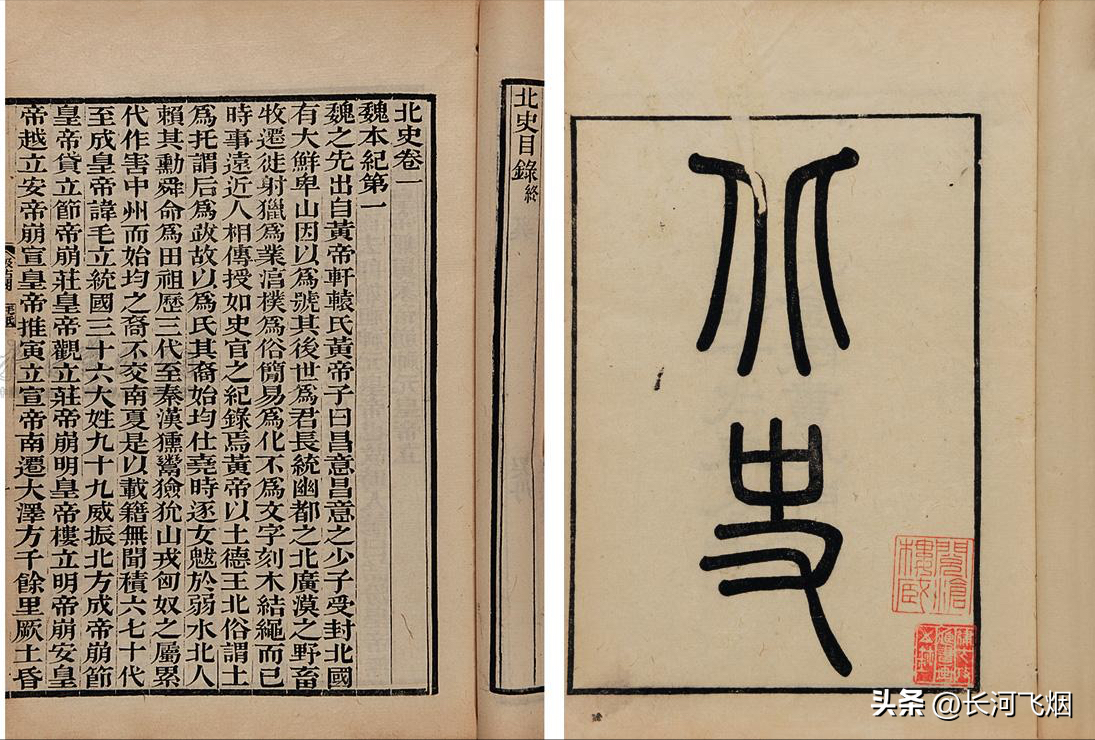 北史
北史目錄終
北史卷一
魏本紀第一
魏之先出自黃帝軒轅氏黃帝子曰昌意昌意之少子受封北國
有大鮮卑山因以爲號其後世爲君長統幽都之北廣漠之野畜
牧遷徙射獵爲業湻樸爲俗簡易爲化不爲文字刻木結繩而已
時事遠近人相傳授如史官之紀錄焉黃帝以土德王北俗謂土
爲托謂后爲跋故以爲氏其裔始均仕堯時逐女魃於弱水北人
賴其勳舜命爲田祖歷三代至秦漢獯鬻獫狁山戎匈奴之屬累
代作害中州而始均之裔不交南夏是以載籍無聞積六七十代
至成皇帝諱毛立統國三十六大姓九十九威振北方成帝崩節
皇帝貸立節帝崩莊皇帝觀立莊帝崩明皇帝樓立明帝崩安皇
帝越立安帝崩宣皇帝推寅立宣帝南遷大澤方千餘里厥土昏
头条 @长河飞烟